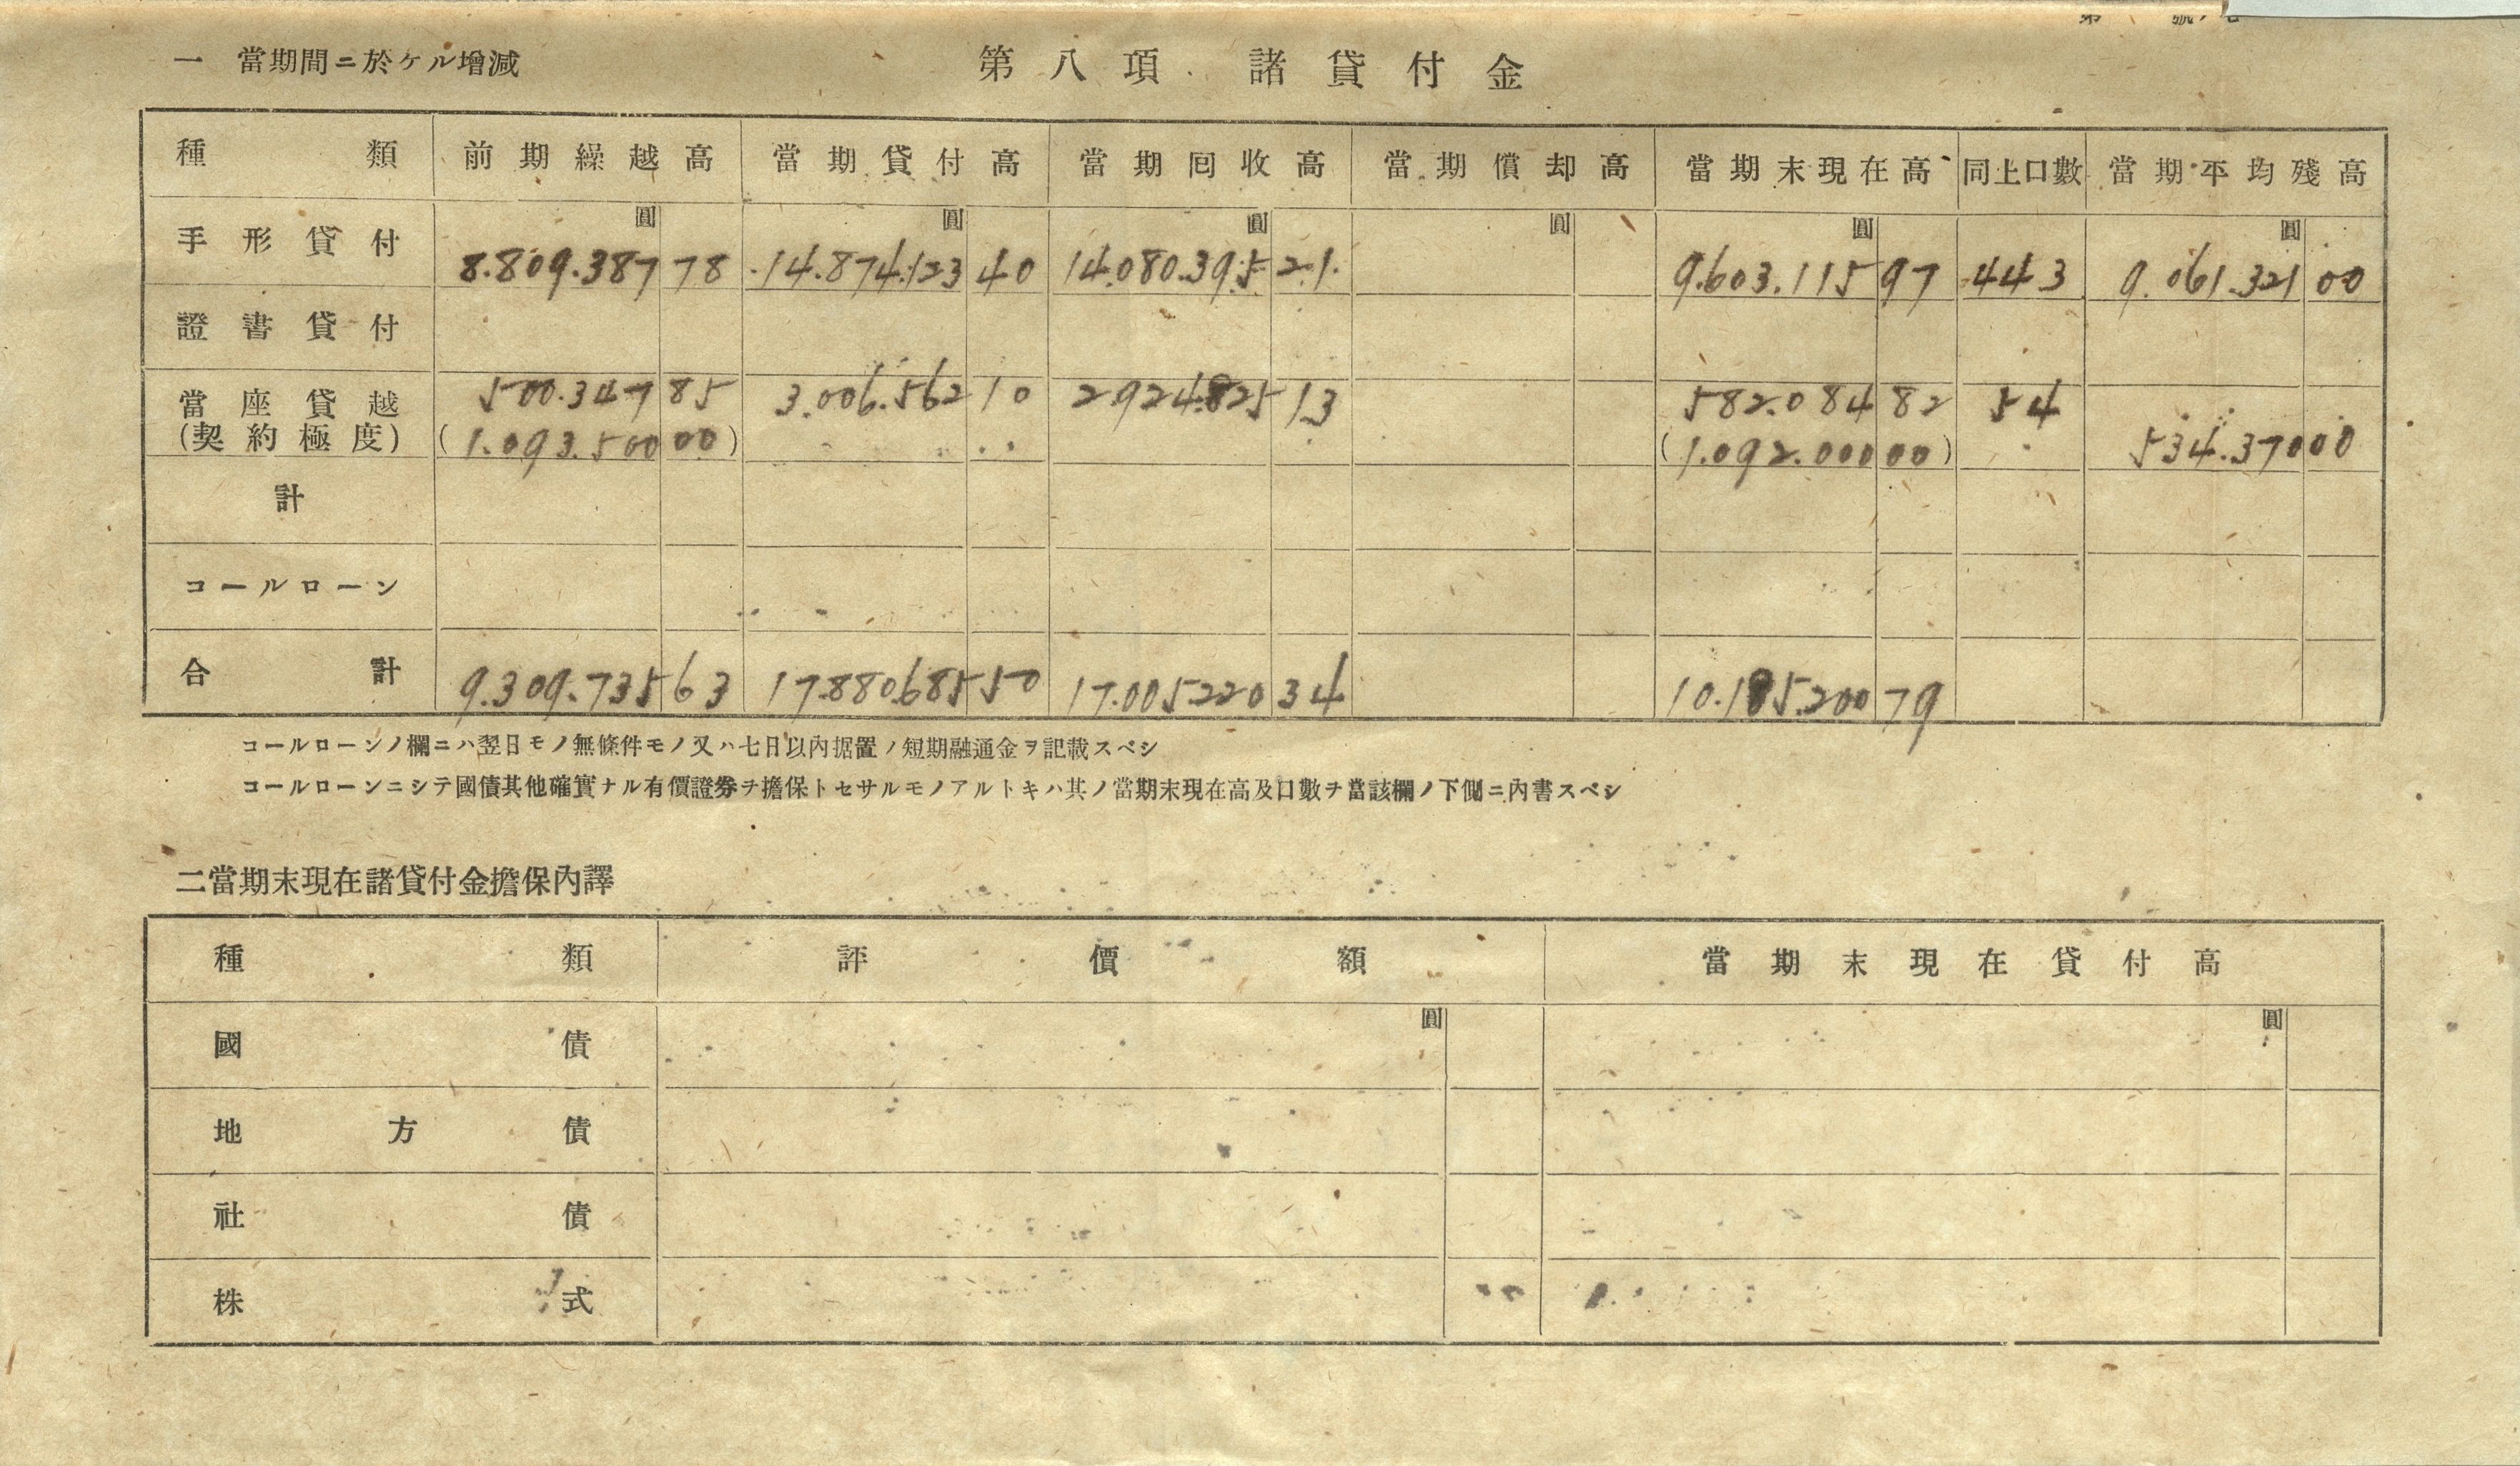 一 當期間ニ於ケル增減
第八項 諸貸付金
種類 前期繰越高 當期貸付高 當期囘收高 當期償却高 當期末現在高 同上口數 當期平均殘高
圓 圓 圓 圓 圓 圓
手形貸付 8.809.387 78 14.874.123 40 14.080.395 21 9.603.115 97 443 9.061.321 00
證書貸付
當座貸越 500.347 85 3.006.562 10 2924.825 13 582.084 82 54
(契約極度) (1.093.500 00) (1.092.000 00) 534.370 00
計
コールローン
合計 9.309.735 63 17.880.685 50 17.005.220 34 10.185.200 79
コールローンノ欄ニハ翌日モノ無條件モノ又ハ七日以內据置ノ短期融通金ヲ記載スベシ
コールローンニシテ國債其他確實ナル有價證券ヲ擔保トセサルモノアルトキハ其ノ當期末現在高及口數ヲ當該欄ノ下側ニ內書スベシ
二當期末現在諸貸付金擔保內譯
種類 評價額 當期末現在貸付高
圓 圓
國債
地方債
社債
株式